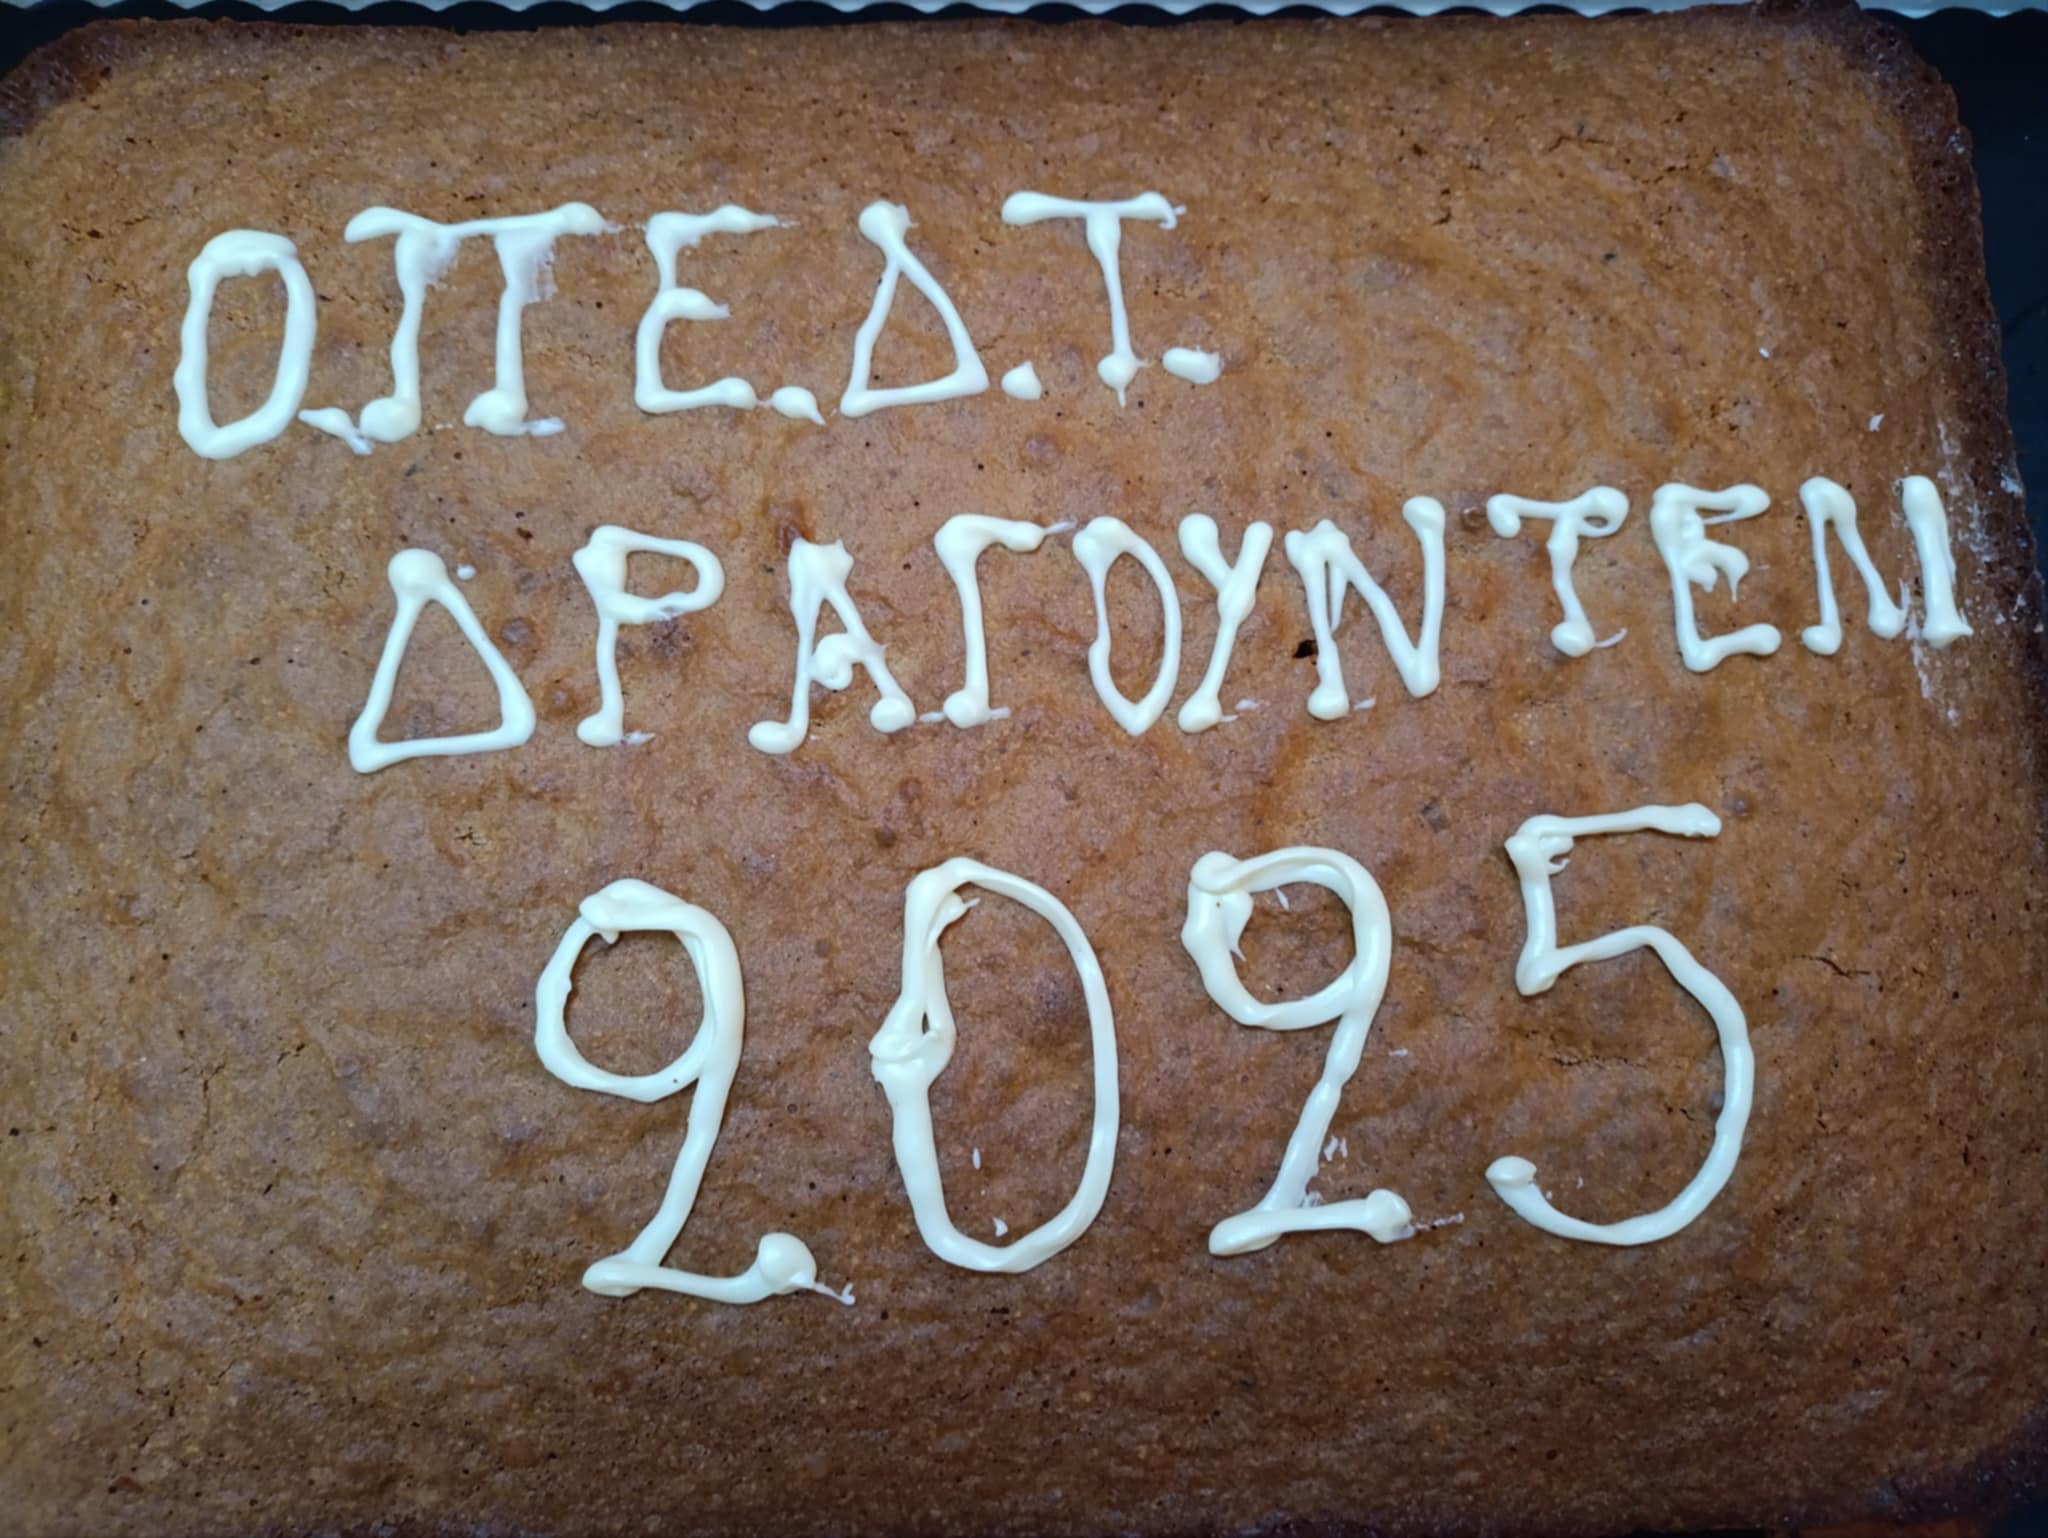 Ο.Π.Ε.Δ.Τ.
ΔΡΑΓΟΥΝΤΕΜ
2025